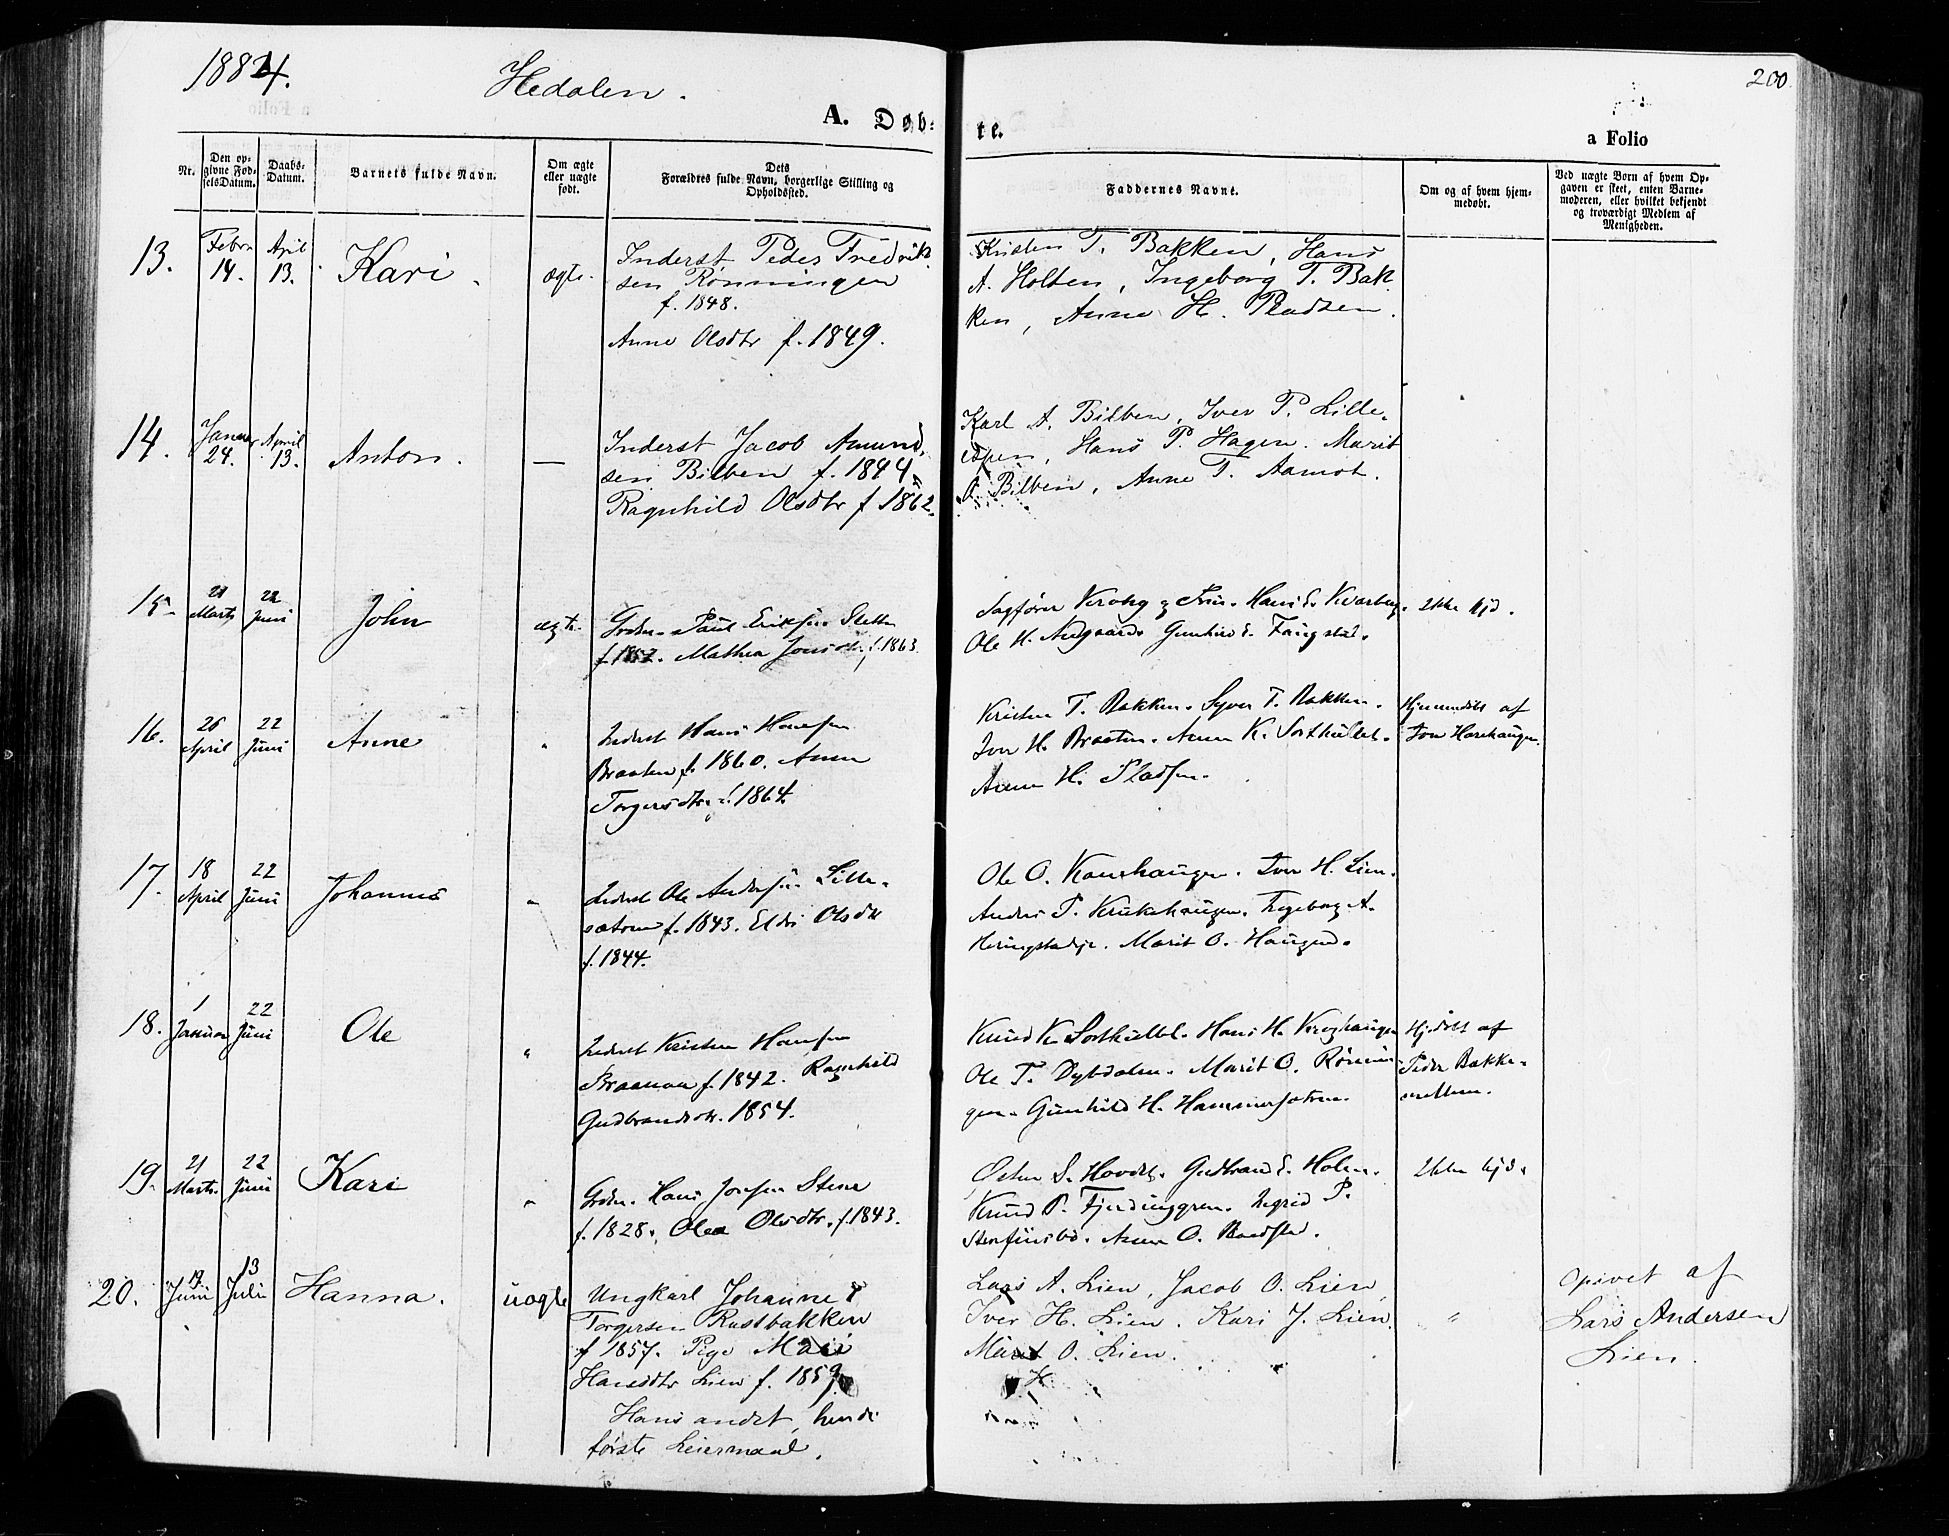 1884.
Hedalen.
200
A. Døb-
te.
a Folio
Nr.
Den op-
givne Fød-
selsDatum.
Daabs-
Datum.
Barnets fulde Navn.
Om ægte
eller uægte
født.
Dets
Forældres fulde Navn, borgerlige Stilling og
Opholdssted.
Faddernes Navne.
Om og af hvem hjem-
medøbt.
Ved uægte Børn af hvem Op-
gaven er skeet, enten Barne-
moderen, eller hvilket bekjendt
og troværdigt Medlem af
Menigheden.
13.
Febru
14.
April
13.
Kari
ægte.
Inderst Peder Fredrik-
sen Rønningen
f. 1848.
Anne Olsdtr f. 1849.
Kristen T. Bakken, Hans
A. Holten, Ingeborg T. Bak-
ken, Anne H. Pladsen.
14.
Januar
24.
April
13.
Anton.
—
Inderst Jacob Amund-
sen Bilben f. 1844.
Ragnhild Olsdtr f 1862.
Karl A. Bilben, Iver P. Lille-
Hans P. Hagen. Marit
O. Bilben, Anne T. Aamot.
15.
21
Marts
22
Juni
John
ægte.
Paul Eriksen
f. 1857. Mathea Jonsdtr. f. 1863.
Sagfører Krohg og Frue. Hans E. Kvarberg.
Ole H. Nedgaard. Gunhild E. Fangstad.
Ikke hjd.
16.
26
April
22
Juni
Anne
"
Inderst Hans Hansen
Braaten f. 1860. Anne
Torgersdtr. f. 1864.
Kristen T. Bakken. Syver T. Bakken.
Iver H. Braaten. Anne K. Sorthullet.
Anne H. Pladsen.
Hjemmedøbt af
17.
18
April
22
Juni
Johannes
"
Inderst Ole Andersen Lille-
sætren f. 1843. Eldri Olsdtr
f. 1844.
Ole O. Iver H. Lien.
Anders P. Krukehaugen. Ingeborg A.
Marit O. Haugerud.
18.
1
Januar
22
Juni
Ole
"
Inderst Kristen Hansen
f. 1842. Ragnhild
Gudbrandsdtr. 1854.
Knud K. Sorthullet. Hans H. Kroghaugen
Ole T. Dybdalen. Marit O. Rønnin-
gen. Gunhild H. Hammersætren.
Hjdøbt af
Peder Bakke-
mellem.
19.
21
Marts.
22
Juni
Kari
"
Hans Jonsen Stene
f. 1828. Olea Olsdtr. f. 1843.
Østen S. Hovde. Gudbrand E. Holm.
Knud P. Fjerdinggren. Ingrid P.
Anne O. Baadstad.
Ikke hjd.
20.
17
Juni
13
Juli
Hanna.
uægte
Ungkarl Johannes
Torgersen Rustbakken
f 1857. Pige Mari
Hansdtr Lien f. 1859
Hans andet, hendes
første Leiermaal.
Lars A. Lien, Jacob O. Lien,
Iver H. Lien. Kari J. Lien.
Marit O. Lien.
H.
"
Opivet af
Lars Andersen
Lien.